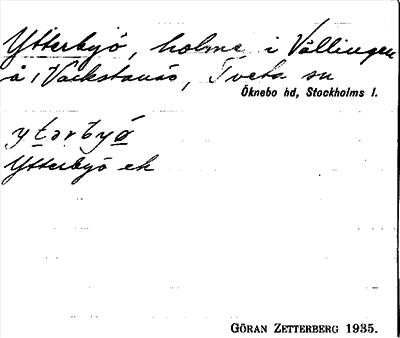 Ytterbyö, holme i Vällingen
å Vackstanäs, Tveta sn
Öknebo hd, Stockholms l.
yt̲ərbyø̲
Ytterbyö ek
GÖRAN ZETTERBERG 1935.